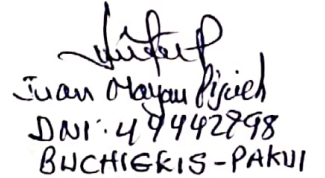 Juan Mayan Pijuch
DNI: 49442798
BUCHIGKIS-PAKUI